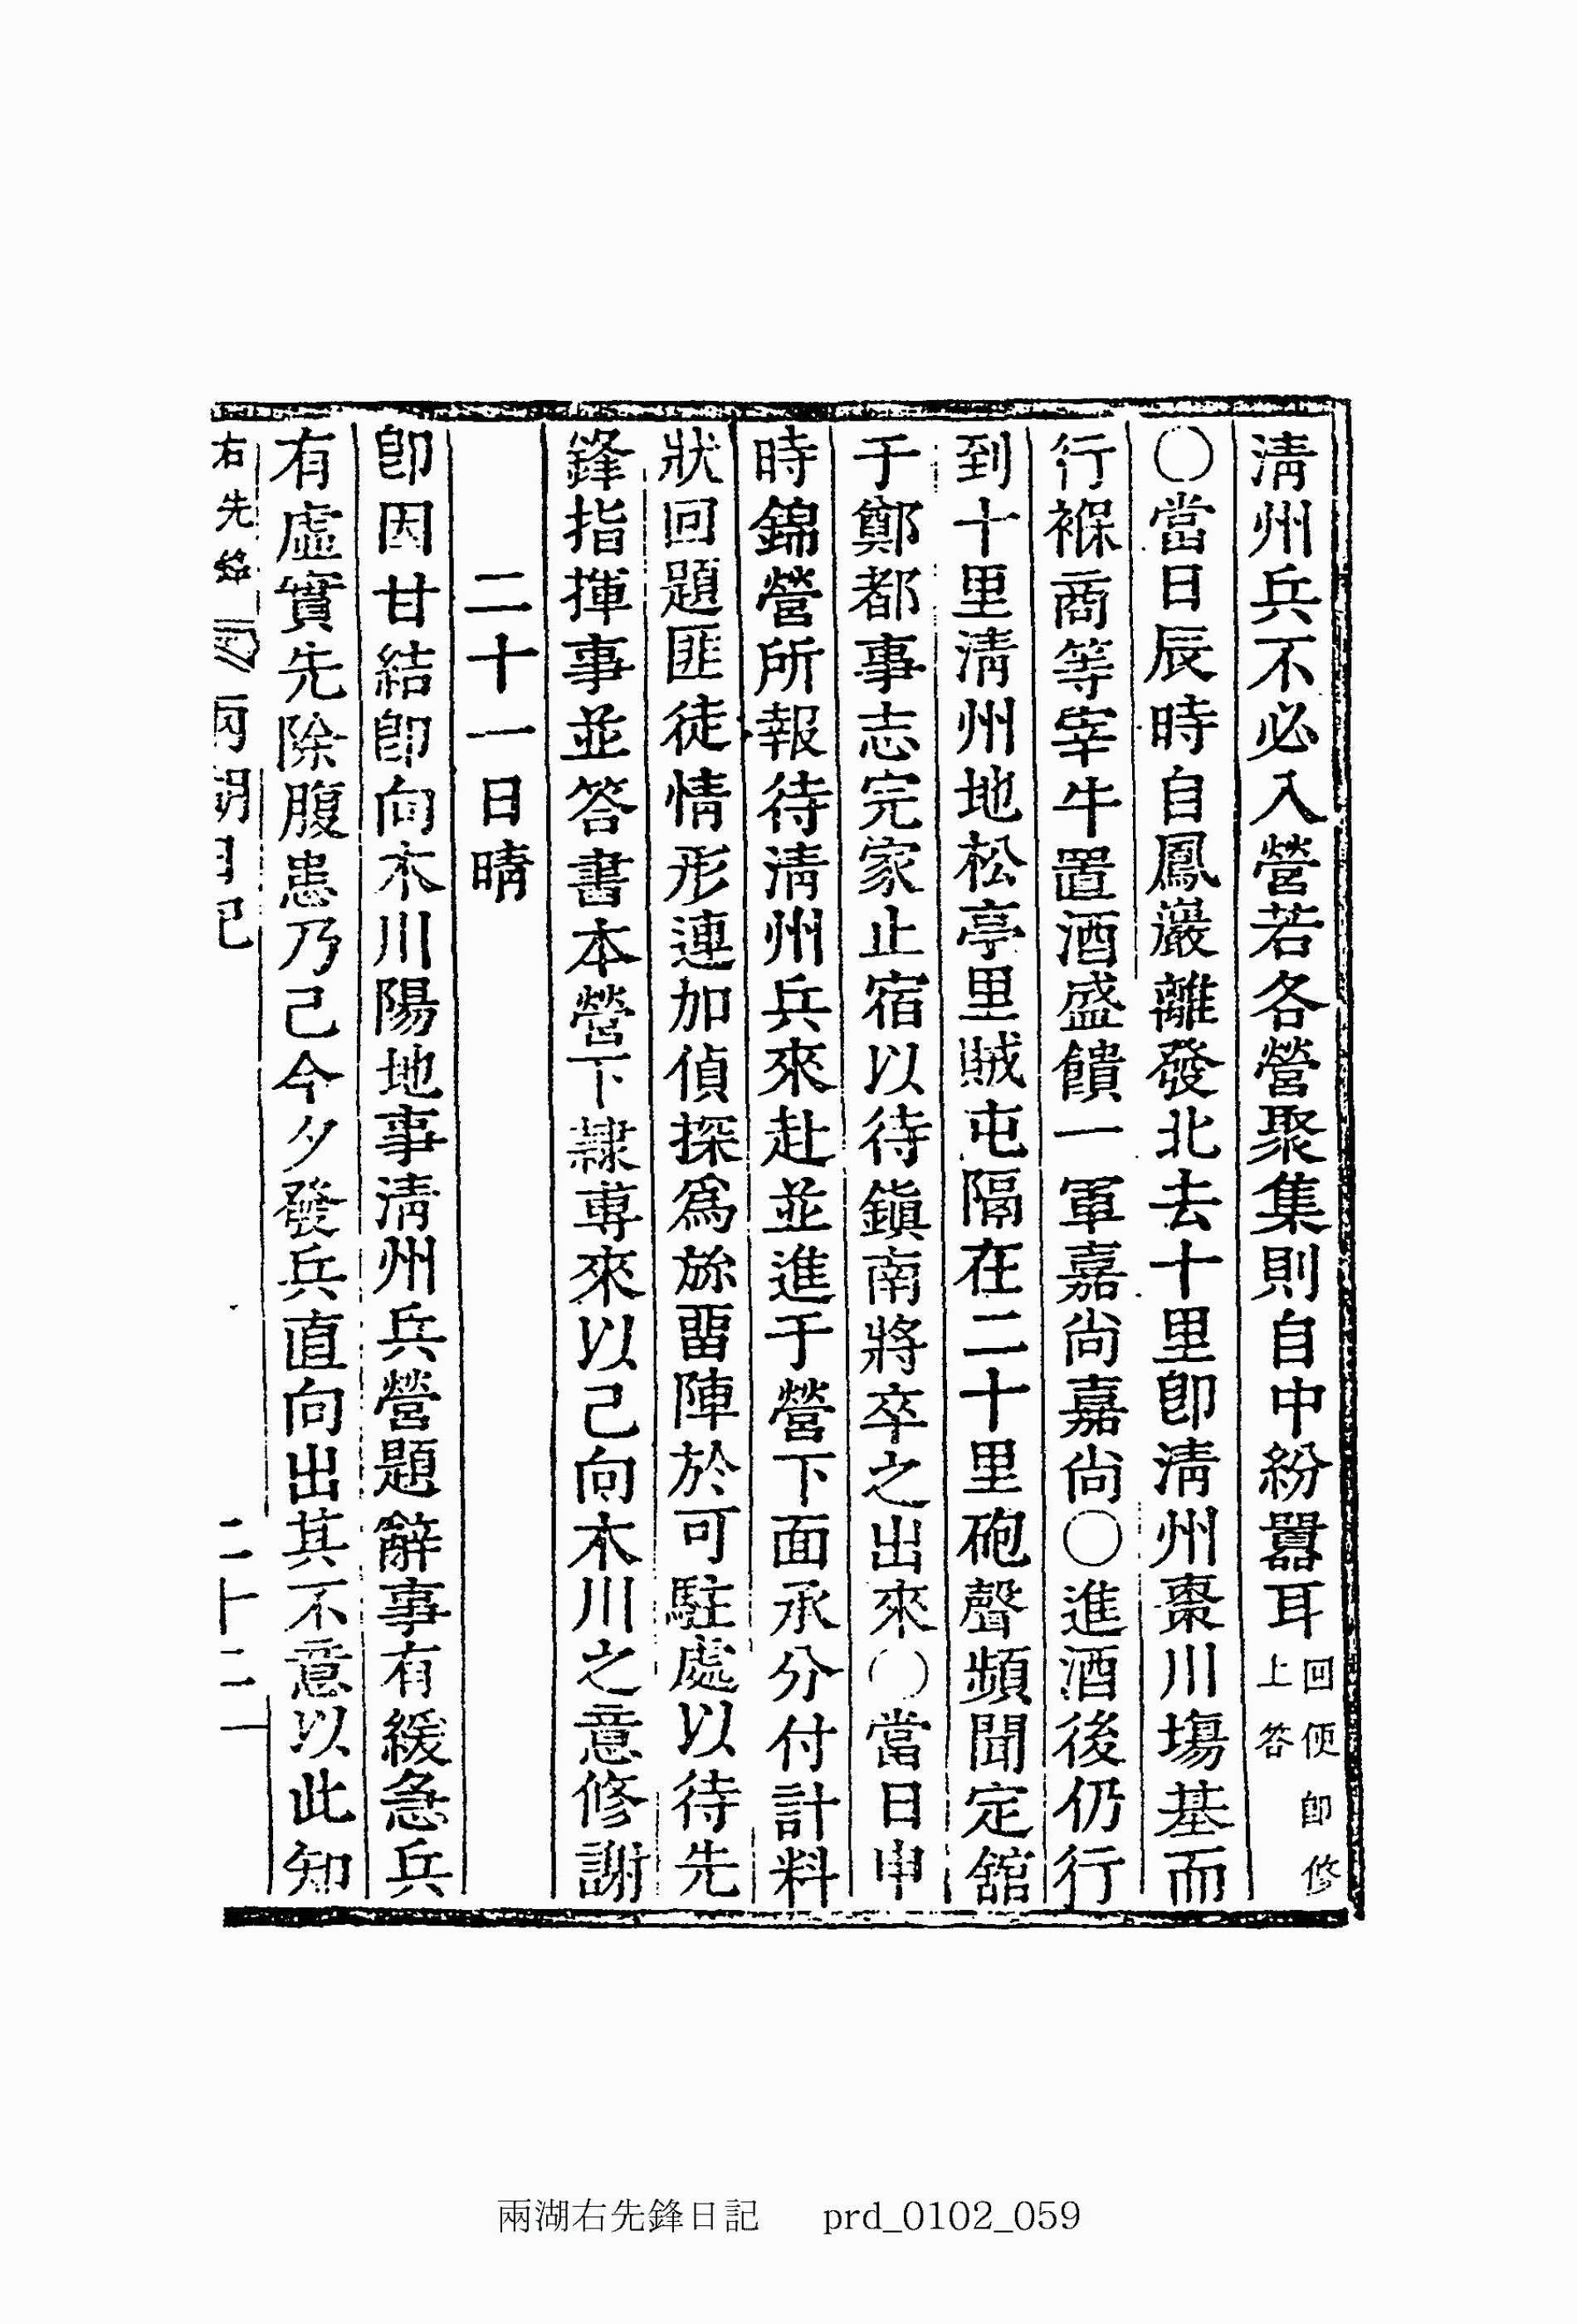 淸州兵不必入營若各營聚集則自中紛囂耳回便卽修上答
〇當日辰時自鳳巖離發北去十里卽淸州棗川塲基而
行褓商等宰牛置酒盛饋一軍嘉尙嘉尙〇進酒後仍行
到十里淸州地松亭里賊屯隔在二十里砲聲頻聞定舘
于鄭都事志完家止宿以待鎭南將卒之出來〇當日申
時錦營所報待淸州兵來赴並進于營下面承分付計料
狀回題匪徒情形連加偵探爲旀留陣於可駐處以待先
鋒指揮事並答書本營下隸專來以己向木川之意修謝
二十一日晴
卽因甘結卽向木川陽地事淸州兵營題辭事有緩急兵
有虛實先除腹患乃己今夕發兵直向出其不意以此知
右先鋒 兩湖日記 二十二
兩湖右先鋒日記 prd_0102_059